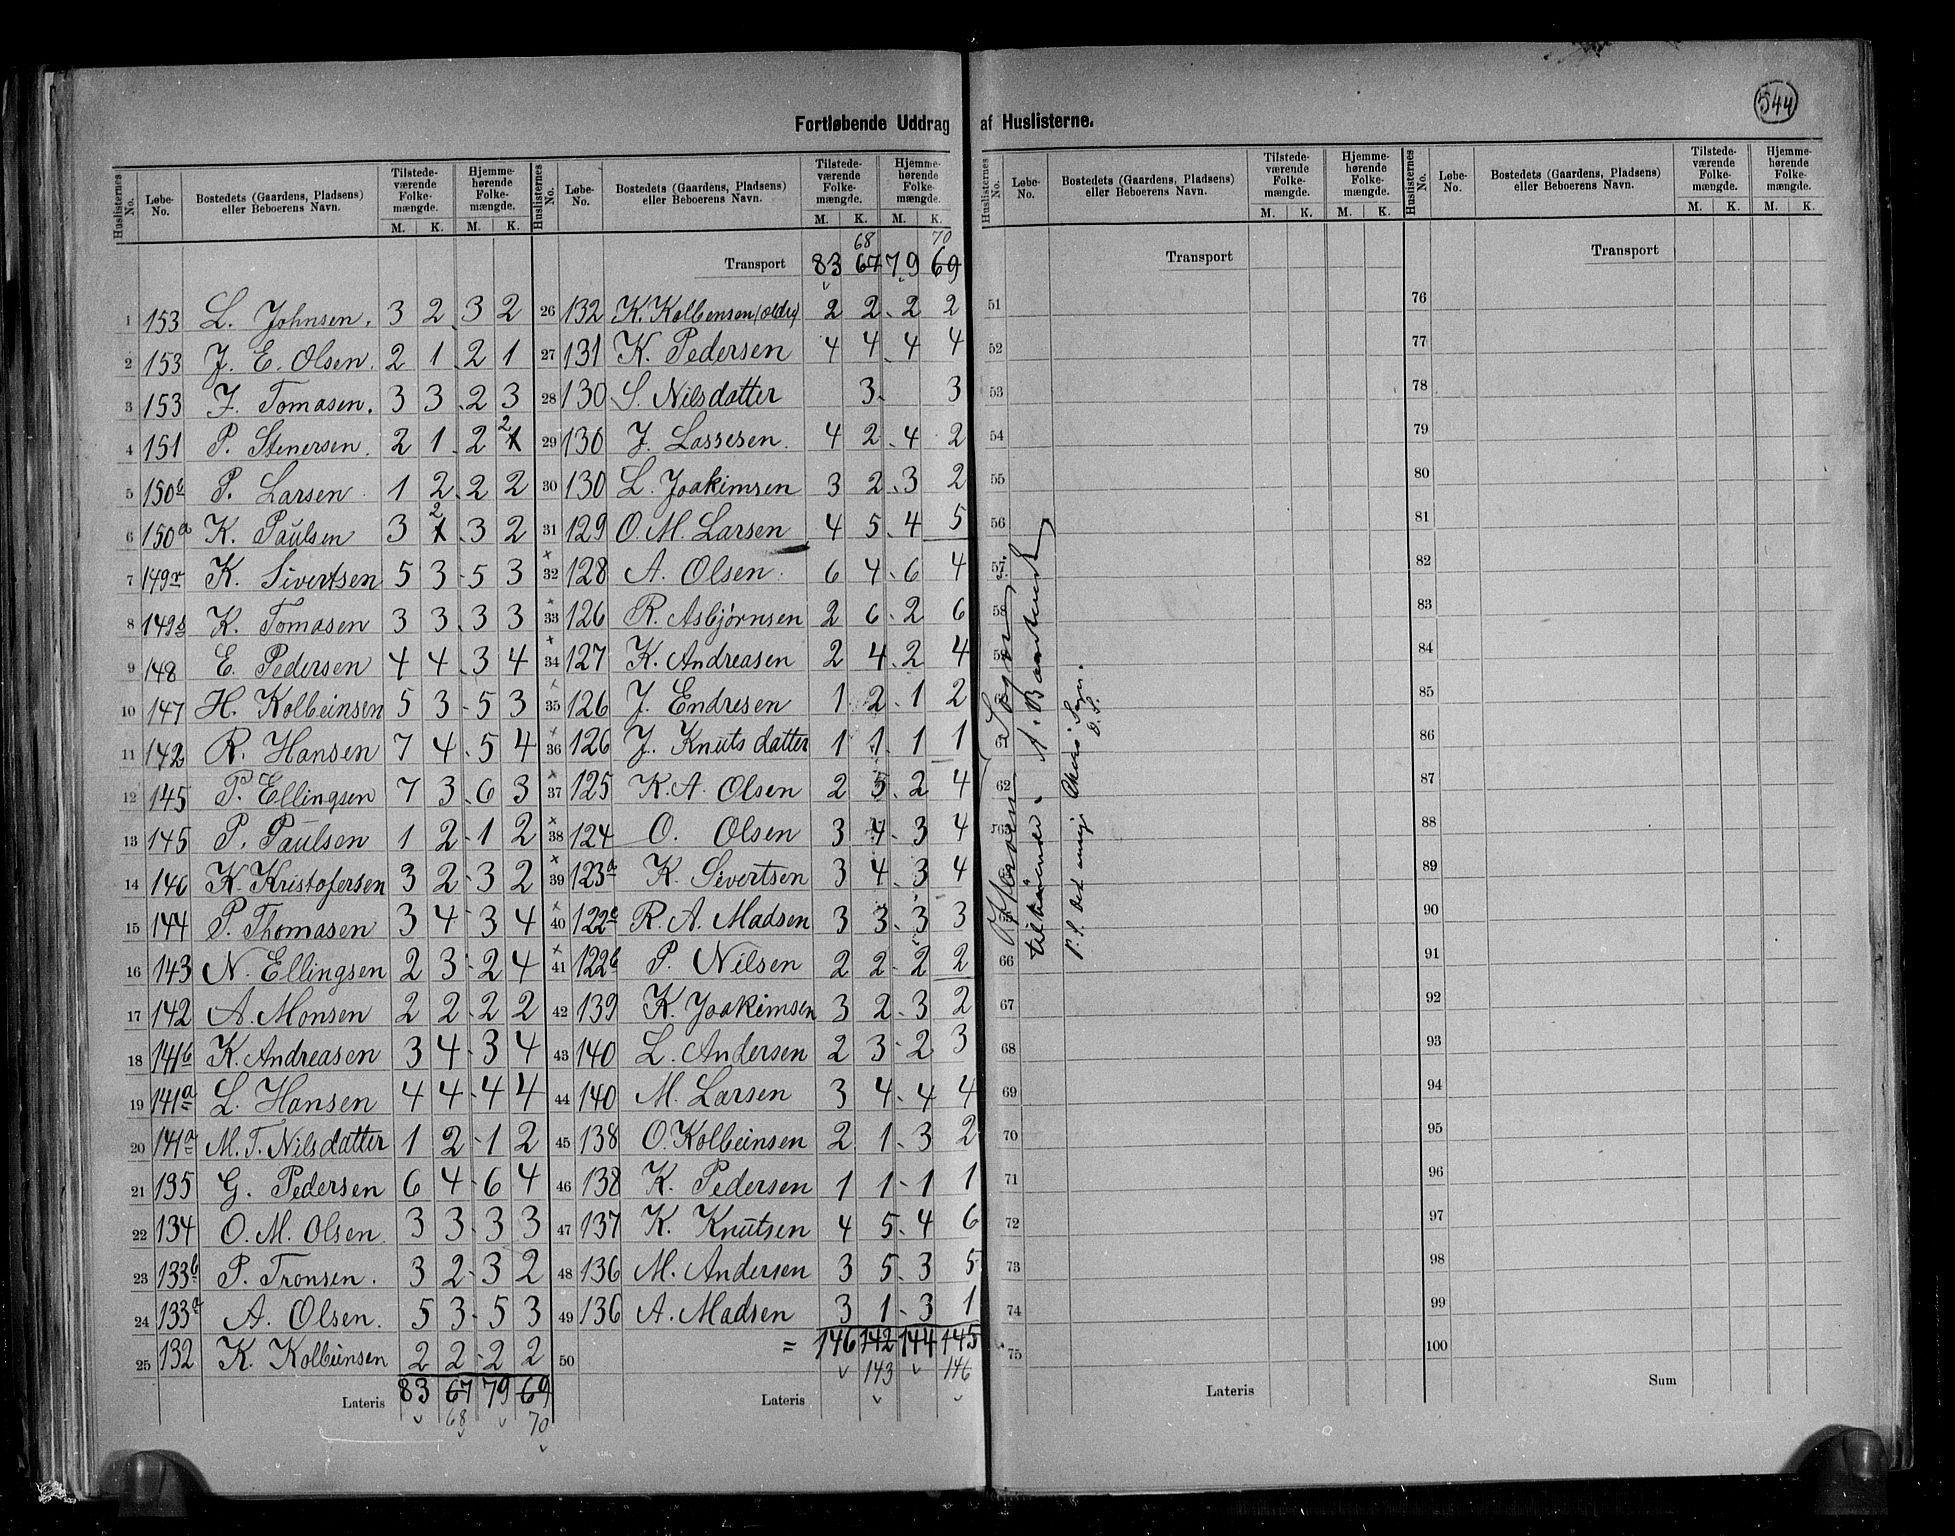 544
Fortløbende Uddrag af Huslisterne.
Huslisternes No. Løbe-No. Bostedets (Gaardens, Pladsens) eller Beboerens Navn. Tilstedeværende Folkemængde. M. K. Hjemmehørende Folkemængde. M. K.
1 153 L. Johnsen. 3 2 3 2
2 153 J. E. Olsen. 2 1 2 1
3 153 J. Tomasen. 3 3 2 3
4 151 P. Stenersen. 2 1 2 1 2
5 150b P. Larsen 1 2 2 2
6 150a K. Paulsen 3 1 2 3 2
7 149 K. Sivertsen 5 3 5 3
8 149 K. Tomasen 3 3 3 3
9 148 E. Pedersen 4 4 3 4
10 147 H. Kolbeinsen 5 3 5 3
11 142 R. Hansen 7 4 5 4
12 145 P. Ellingsen 7 3 6 3
13 145 P. Paulsen 1 2 1 2
14 146 K. Kristofersen 3 2 3 2
15 144 P. Thomasen 3 4 3 4
16 143 N. Ellingsen 2 3 2 4
17 142 A. Monsen 2 2 2 2
18 141b K. Andreasen 3 4 3 4
19 141a L. Hansen 4 4 4 4
20 141a M. T. Nilsdatter 1 2 1 2
21 135 G. Pedersen 6 4 6 4
22 134 O. M. Olsen. 3 3 3 3
23 133b P. Tronsen. 3 2 3 2
24 133a A. Olsen. 5 3 5 3
25 132 K. Kolbeinsen 2 2 2 2
Lateris 83 67 79 69
68 70
Huslisternes No. Løbe-No. Bostedets (Gaardens, Pladsens) eller Beboerens Navn. Tilstedeværende Folkemængde. M. K. Hjemmehørende Folkemængde. M. K.
68 70
Transport 83 67 79 69
26 132 K. Kolbensen (eldre) 2 2 2 2
27 131 K. Pedersen 4 4 4 4
28 130 S. Nilsdatter 3 3
29 130 J. Lassesen. 4 2 4 2
30 130 L. Joakimsen 3 2 3 2
31 129 O. M. Larsen 4 5 4 5
32 128 A. Olsen. 6 4 6 4
33 126 R. Asbjørnsen 2 6 2 6
34 127 K. Andreasen 2 4 2 4
35 126 J. Endresen 1 2 1 2
36 126 J. Knutsdatter 1 1 1 1
37 125 K. A. Olsen 2 5 2 4
38 124 O. Olsen 3 4 3 4
39 123a K. Sivertsen 3 4 3 4
40 122 R. A. Madsen 3 3 3 3
41 122b P. Nilsen 2 2 2 2
42 139 K. Joakimsen 3 2 3 2
43 140 L. Andersen 2 3 2 3
44 140 M. Larsen 3 4 4 4
45 138 O. Kolbeinsen 2 1 3 2
46 138 K. Pedersen 1 1 1 1
47 137 K. Knutsen 4 5 4 6
48 136 M. Andersen 3 5 3 5
49 136 A. Madsen 3 1 3 1
50 = 146 142 144 145
143 146
Lateris
Huslisternes No. Løbe-No. Bostedets (Gaardens, Pladsens) eller Beboerens Navn. Tilstedeværende Folkemængde. M. K. Hjemmehørende Folkemængde. M. K.
Transport
51
52
53
54
55
56
57
58
59
60
61
62
63
64
65
66
67
68
69
70
71
72
73
74
75
Lateris
P. S. Det
D. S.
Huslisternes No. Løbe-No. Bostedets (Gaardens, Pladsens) eller Beboerens Navn. Tilstedeværende Folkemængde. M. K. Hjemmehørende Folkemængde. M. K.
Transport
76
77
78
79
80
81
82
83
84
85
86
87
88
89
90
91
92
93
94
95
96
97
98
99
100
Sum